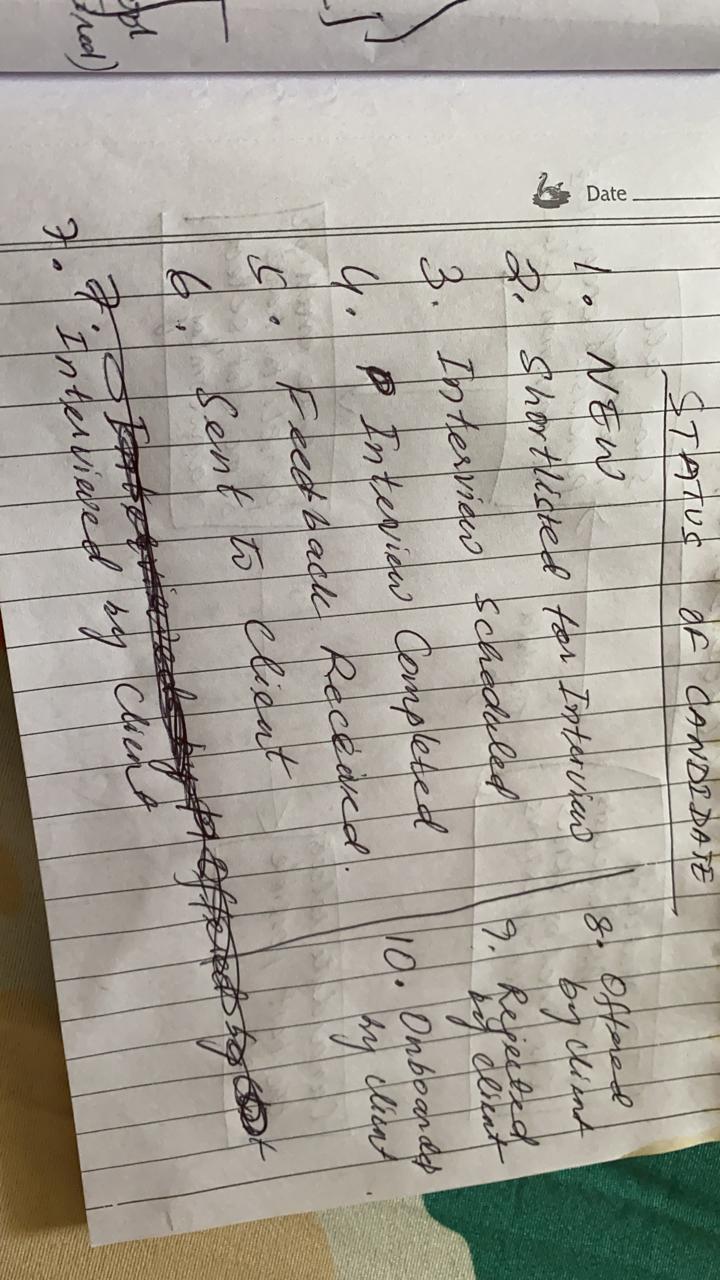 STATUS OF CANDIDATE
Date
1. NEW
2. Shortlisted for Interview
3. Interview Scheduled
4. Interview Completed
5. Feedback Received.
6. Sent to Client
7. Interviewed by Offered by
7. Interviewed by Client
8. Offered
by Client
9. Rejected
by Client
10. Onboarded
by Client